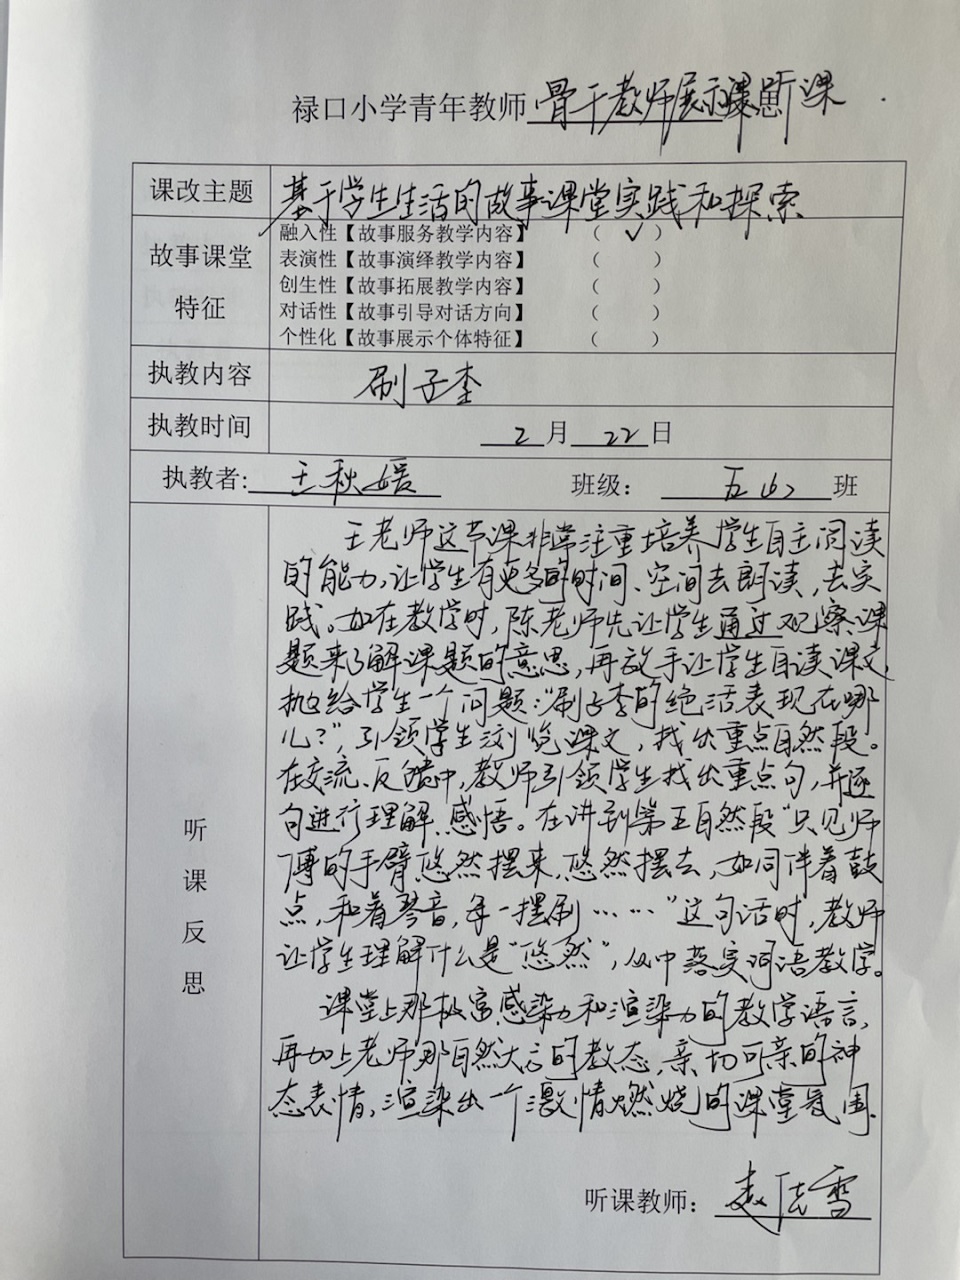 禄口小学青年教师骨干教师展示课思所课
课改主题 基于学生生活的故事课堂实践和探索
故事课堂特征
融入性【故事服务教学内容】 （ ✓ ）
表演性【故事演绎教学内容】 （ ）
创生性【故事拓展教学内容】 （ ）
对话性【故事引导对话方向】 （ ）
个性化【故事展示个体特征】 （ ）
执教内容 刷子李
执教时间 2月22日
执教者: 王秋媛 班级： 五 班
听课反思
王老师这节课非常注重培养学生自主阅读
的能力，让学生有更多的时间、空间去朗读，去实
践。如在教学时，陈老师先让学生通过观察课
题来了解课题的意思，再放手让学生自读课文，
抛给学生一个问题：“刷子李的绝活表现在哪
儿？”，引领学生浏览课文，找出重点自然段。
在交流、反馈中，教师引领学生找出重点句，并逐
句进行理解、感悟。在讲到第五自然段“只见师
傅的手臂悠然摆来，悠然摆去，如同伴着鼓
点，和着琴音，每一摆刷……”这句话时，教师
让学生理解什么是“悠然”，从中落实词语教学。
课堂上那极富感染力和渲染力的教学语言，
再加上老师那自然大方的教态，亲切可亲的神
态表情，渲染出一个激情燃烧的课堂氛围.
听课教师：